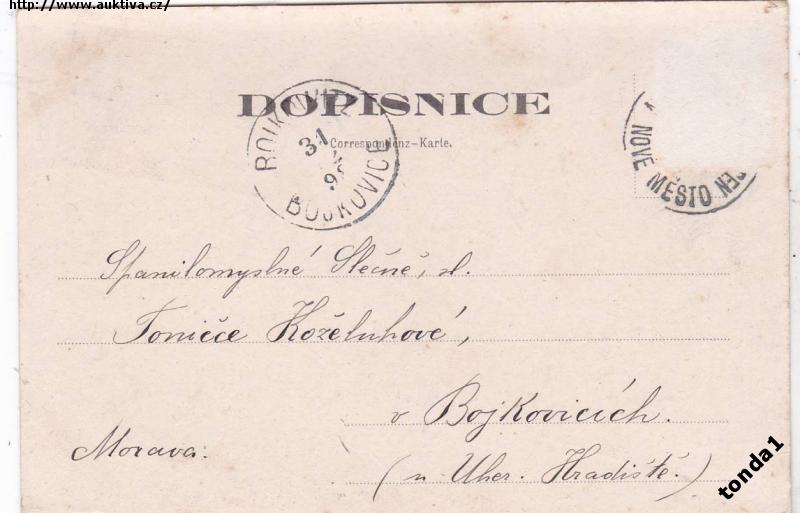 http://www.auktiva.cz/
DOPISNICE
Correspondenz-Karte.
BOJKOVICE
31
98
BOJKOVICE
NOVÉ MĚSTO
Spanilomyslné Slečně, sl.
Toničce Koželuhové,
v Bojkovicích.
Morava.
(u Uher. Hradiště.)
tonda1